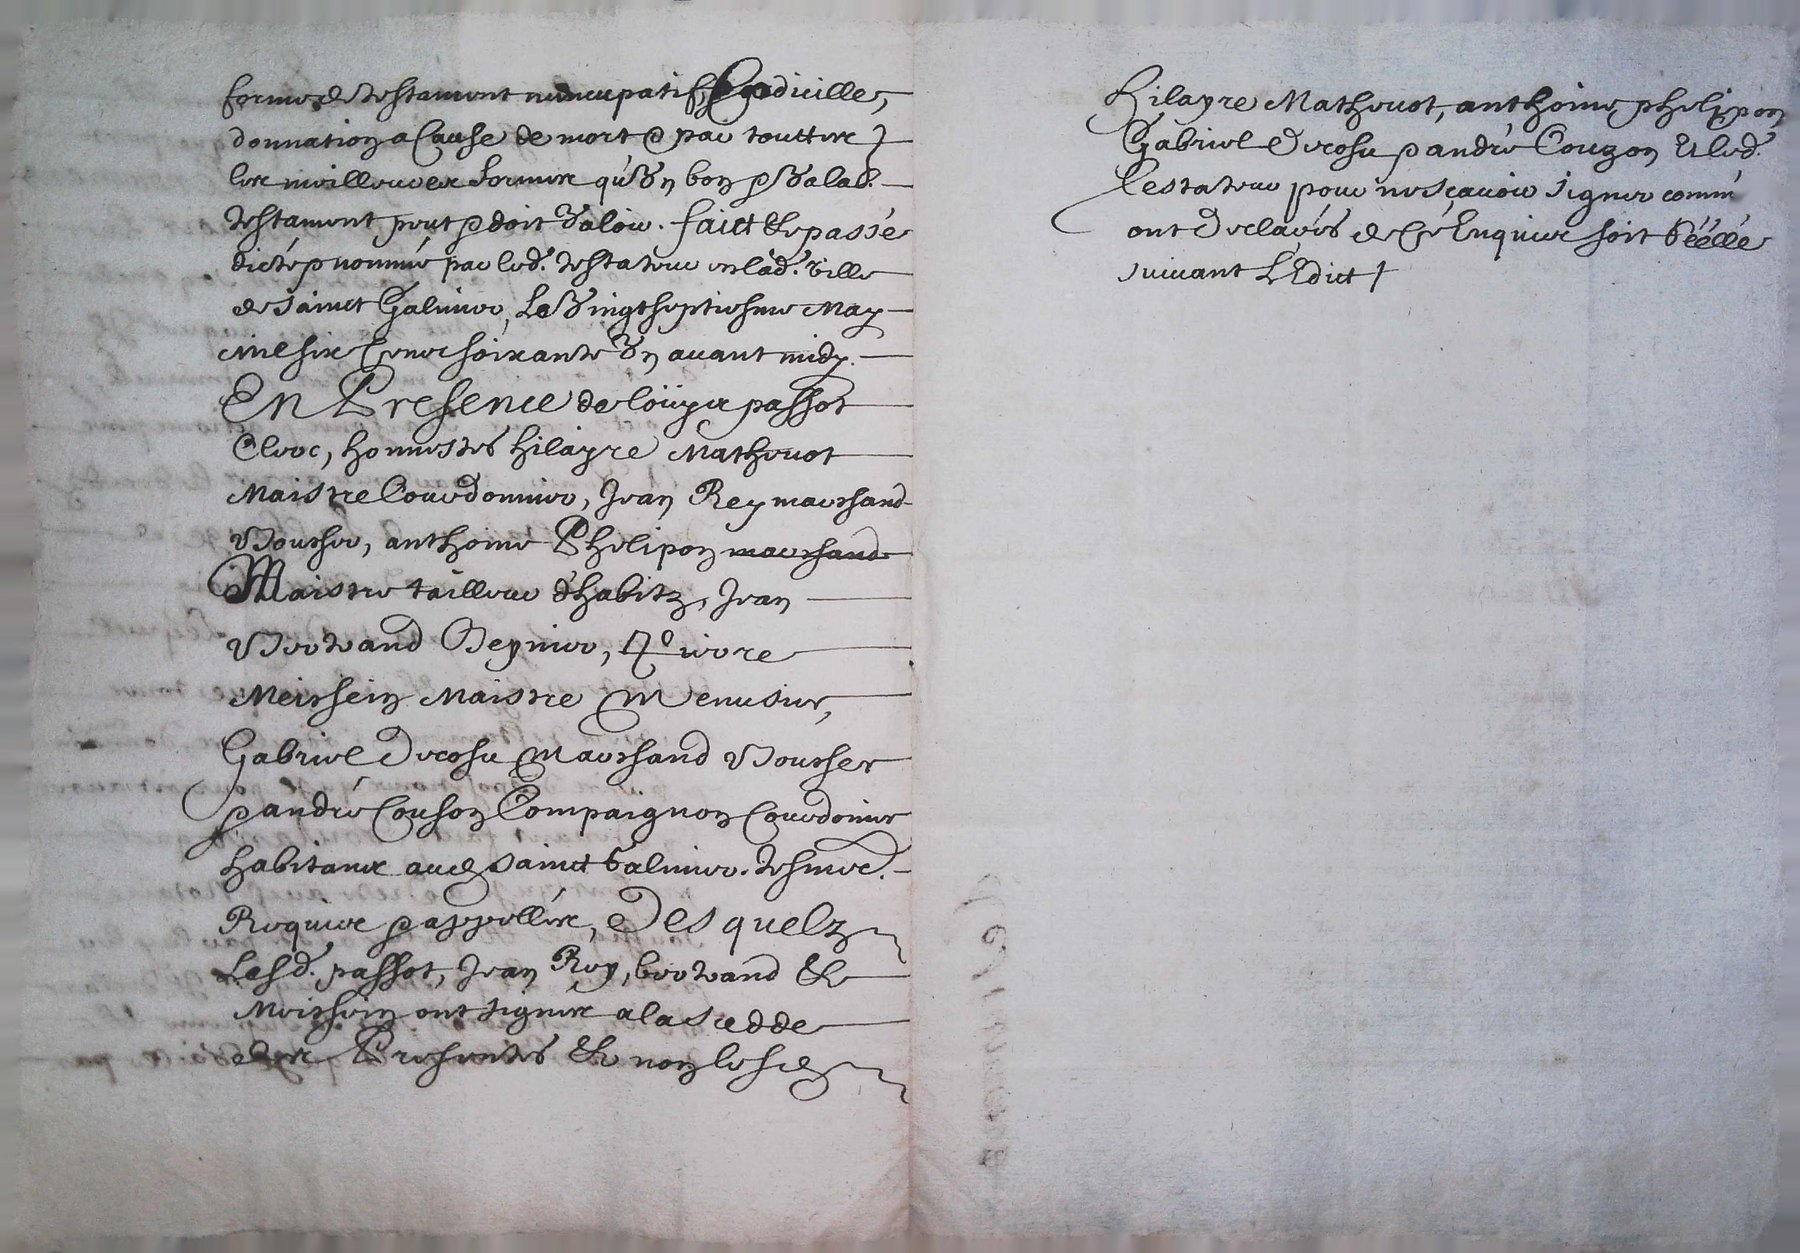 forme de testament nuncupatif, Codicille,
donnation a Cause de mort & par touttes
les meilleures formes qu'Un bon & Valad.
testament peut & doit Valoir. faict & passé
dicté & nommé par led. testateur en lad. ville
de Sainct Galmier, Le Vingtseptiesme May
mil six Cens soixante Un avant midy.
En Presence de loüys passot
Clerc, honnestes hilayre Mathevot
Maistre Courdonnier, Jean Rey marchand
Boucher, anthoine Phelipon marchand
Maistre tailleur d'habitz, Jean
Bertrand Reynier, Pierre
Meissein Maistre Menusier,
Gabriel Decosu Marchand Boucher
& andré Couson Compaignon Courdonier
habitans aud Sainct Galmier. tesmoc.
Requis & appellés, Desquelz
Lesd. passot, Jean Rey, bertrand &
Meissein ont signés a la scedde
des Presentes & non lesd
hilayre Mathevot, anthoine phelippon
Gabriel Decosu & andré Couzon Et led.
testateur pour ne sçavoir signer comm
ont Declarés de Ce Enquis soit Séellé
suivant L'Edict